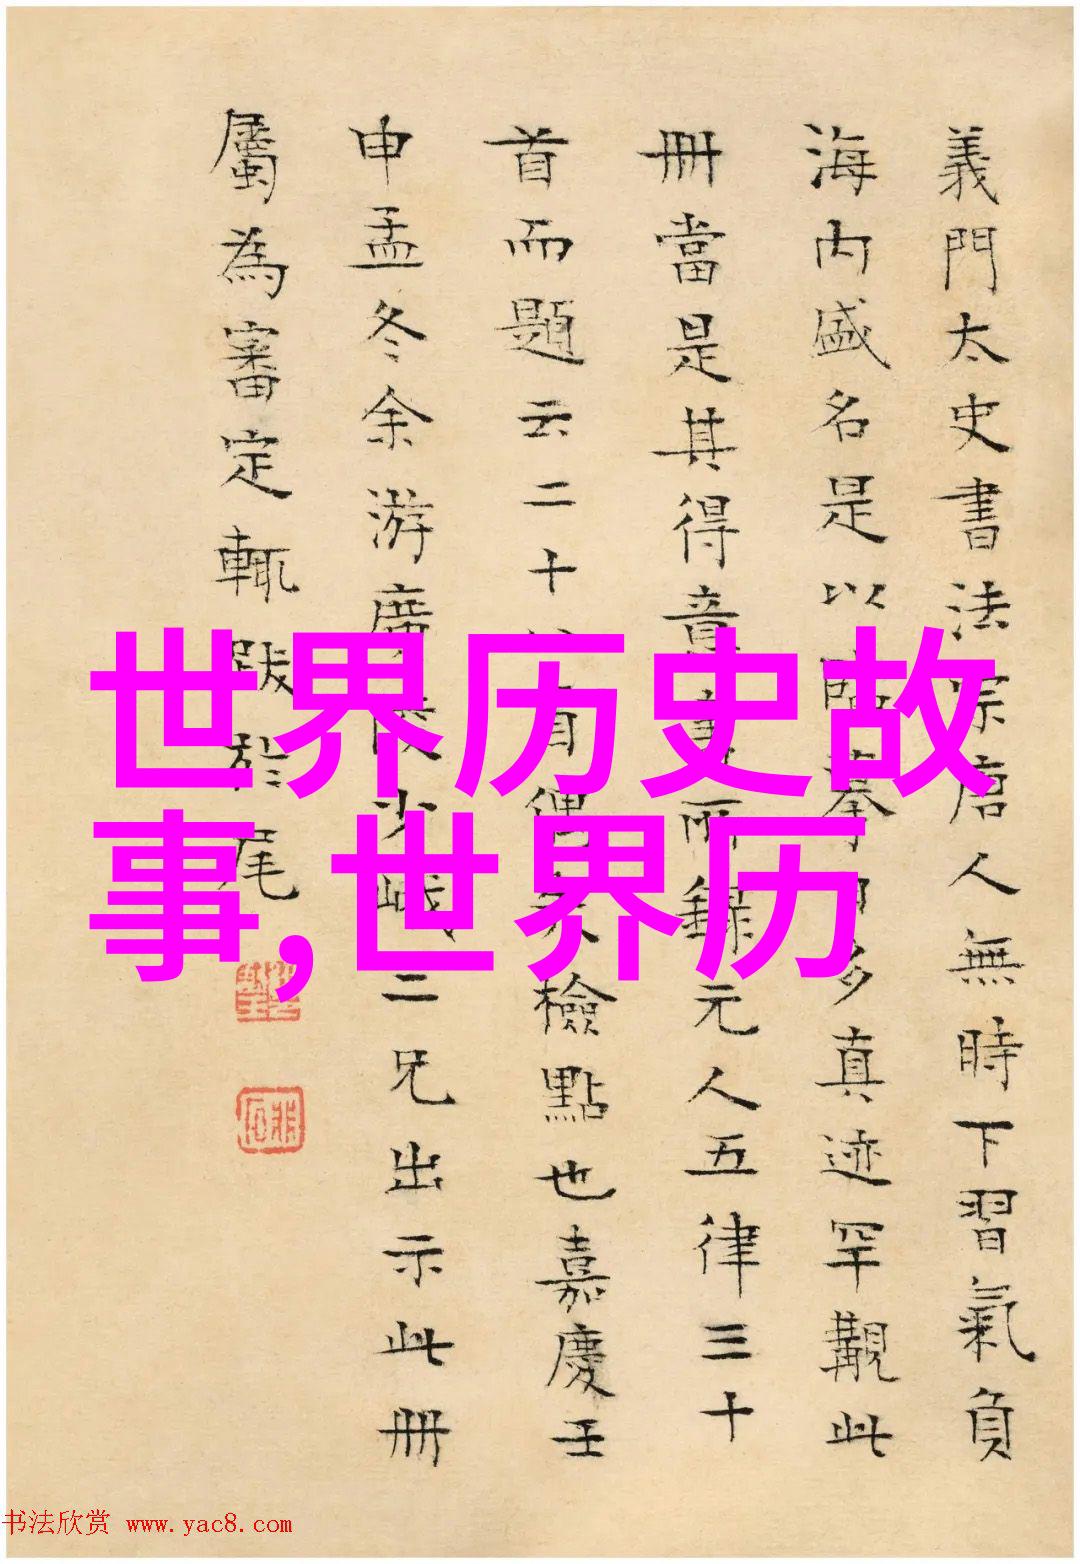 義門太史書法宗唐人無時下習氣負
海内盛名是以臨摹即多真迹罕觏此
冊當是其得意書所錄元人五律三十
首而題云二十首偶未檢點也嘉慶壬
申孟冬余游廣陵少峨二兄出示此冊
屬為審定輒跋於尾
世界历史故
事,世界历
书法欣赏 www.yac8.com